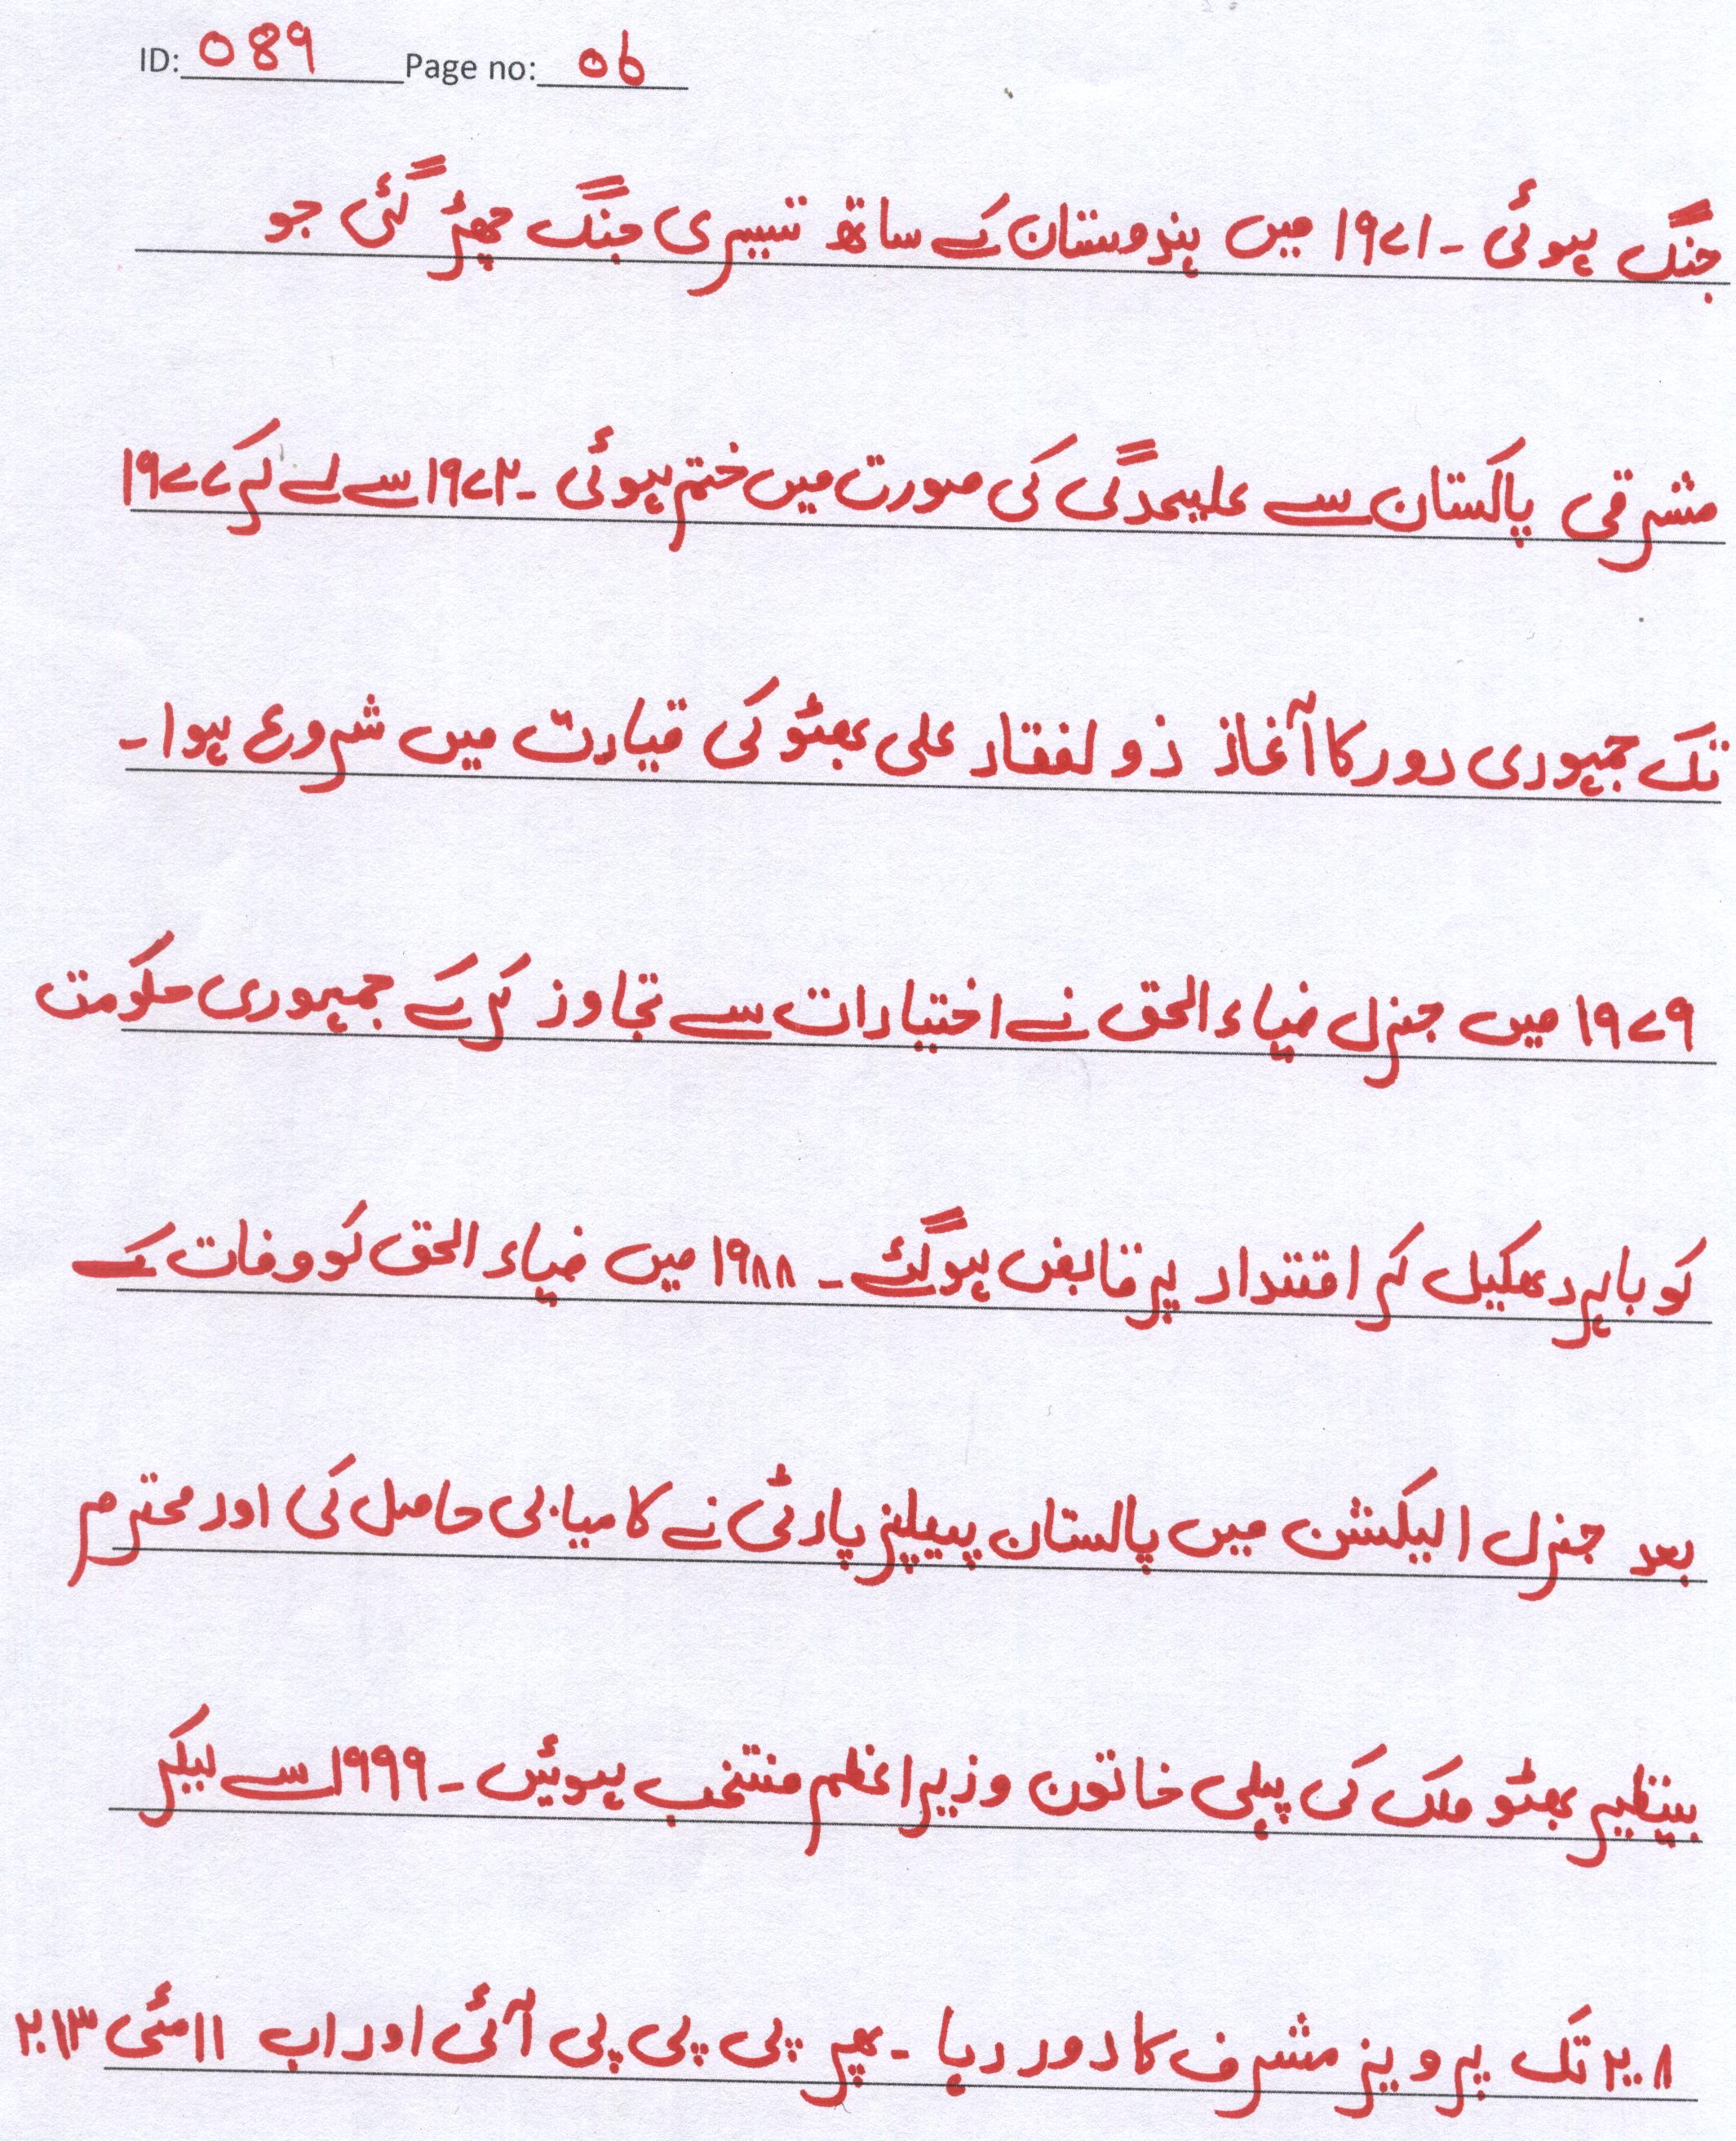 ID: 089 Page no: 06
جنگ ہوئی ۔ ۱۹۷۱ میں ہندوستان کے ساتھ تیسری جنگ چھڑ گئی جو
مشرقی پاکستان سے علیحدگی کی صورت میں ختم ہوئی ۔ ۱۹۷۲ سے لے کر ۱۹۷۷
تک جمہوری دور کا آغاز ذولفقار علی بھٹو کی قیادت میں شروع ہوا ۔
۱۹۷۹ میں جنرل ضیاء الحق نے اختیارات سے تجاوز کر کے جمہوری حکومت
کو باہر دھکیل کر اقتدار پر قابض ہوگئے ۔ ۱۹۸۸ میں ضیاء الحق کو وفات کے
بعد جنرل الیکشن میں پاکستان پیپلیز پارٹی نے کامیابی حاصل کی اور محترم
بینظیر بھٹو ملک کی پہلی خاتون وزیراعظم منتخب ہوئیں ۔ ۱۹۹۹ سے لیکر
۲۰۰۸ تک پرویز مشرف کا دور رہا ۔ پھر پی پی پی آئی اور اب ۱۱ مئی ۲۰۱۳